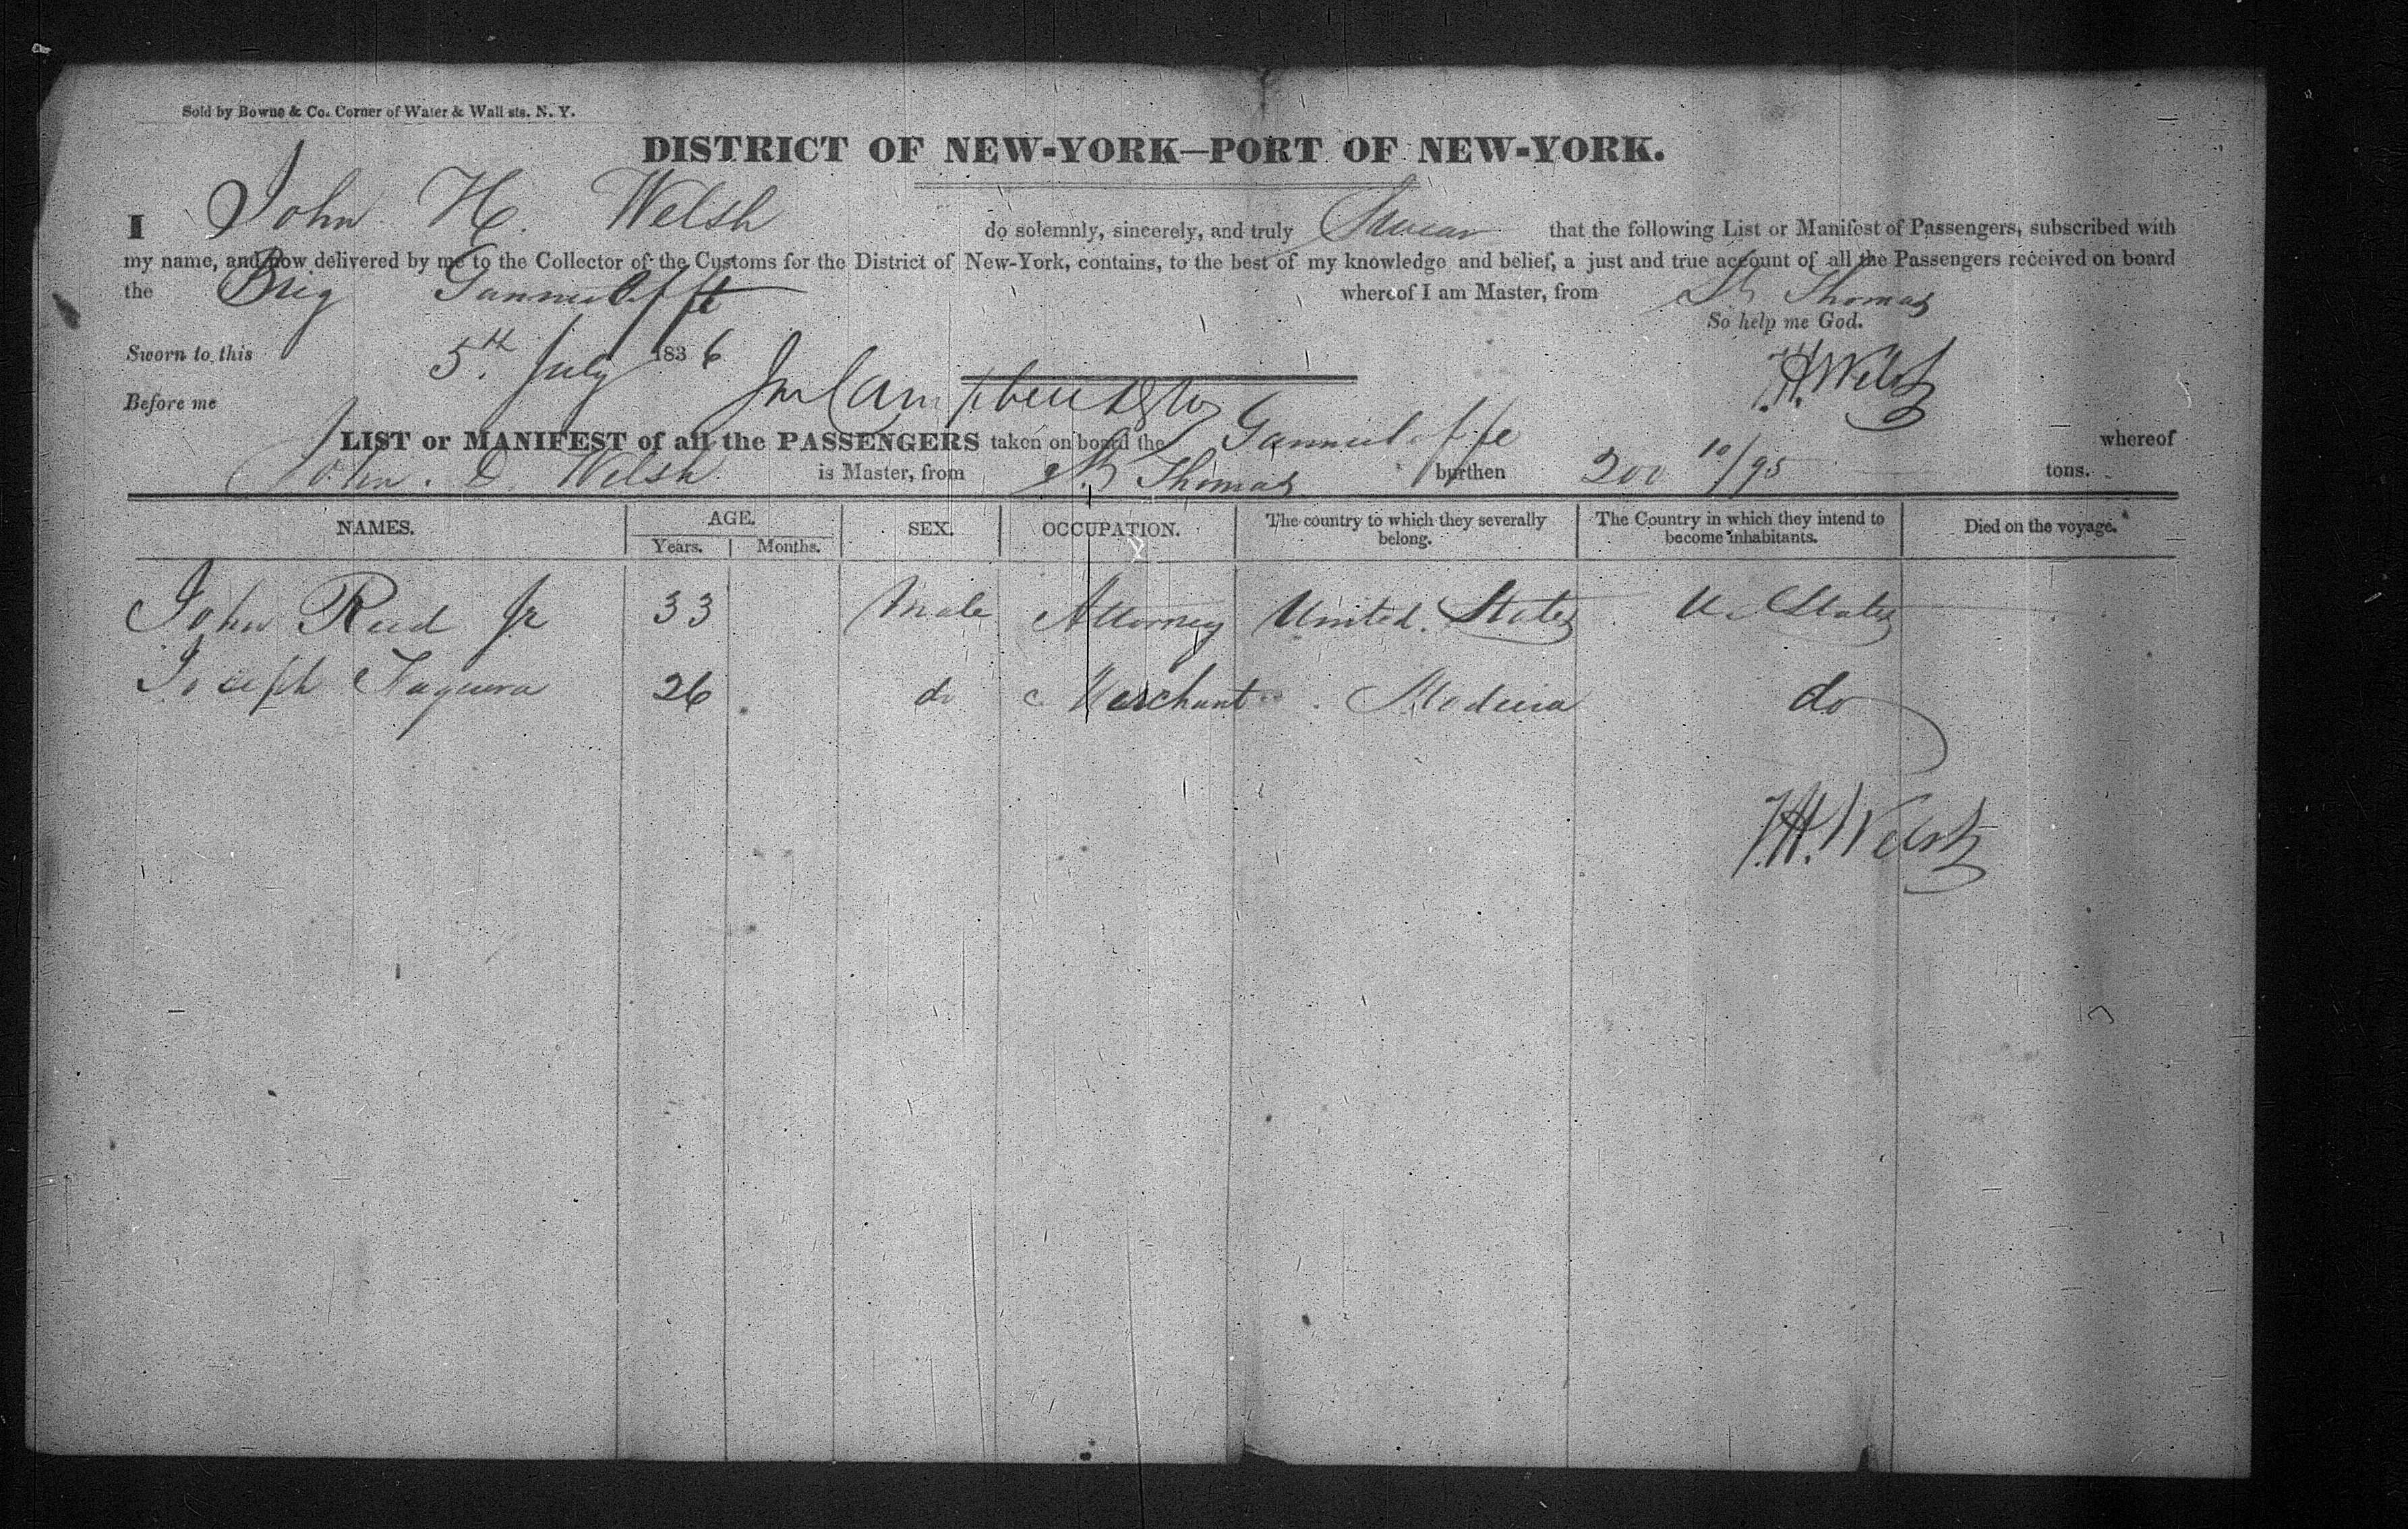 Sold by Bowne & Co. Corner of Water & Wall sts. N. Y.
DISTRICT OF NEW-YORK—PORT OF NEW-YORK.
I John H. Welsh do solemnly, sincerely, and truly Swear that the following List or Manifest of Passengers, subscribed with
my name, and now delivered by me to the Collector of the Customs for the District of New-York, contains, to the best of my knowledge and belief, a just and true account of all the Passengers received on board
the Brig whereof I am Master, from St Thomas
So help me God.
Sworn to this 5th July 1836
J. H. Welsh
Before me
LIST or MANIFEST of all the PASSENGERS taken on board the whereof
John D. Welsh is Master, from St Thomas burthen 200 10/95 tons.
NAMES. AGE. SEX. OCCUPATION. The country to which they severally belong. The Country in which they intend to become inhabitants. Died on the voyage.
Years. Months.
John Reed Jr 33 Male Attorney United States U. States
Joseph 26 do Merchant Madeira do
J. H. Welsh